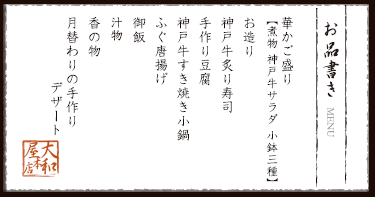 お品書き MENU
華かご盛り
【煮物 神戸牛サラダ 小鉢三種】
お造り
神戸牛炙り寿司
手作り豆腐
神戸牛すき焼き小鍋
ふぐ唐揚げ
御飯
汁物
香の物
月替わりの手作り
デザート
大和屋本店